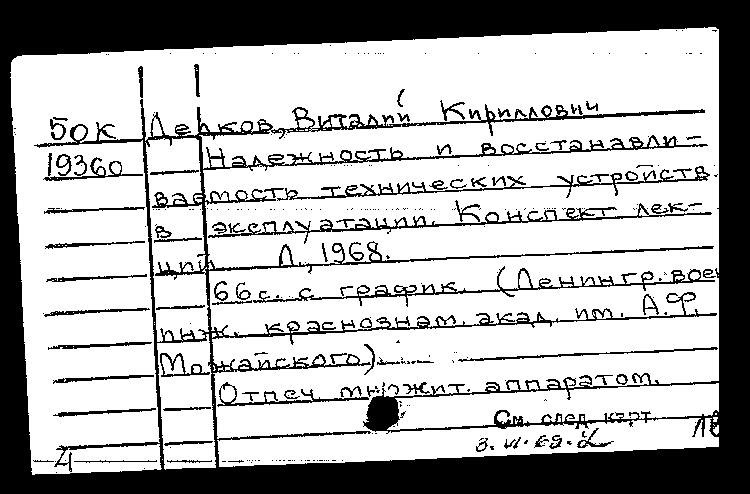 50к Дедков, Виталий Кириллович
19360 Надежность и восстанавли-
ваемость технических устройств
в эксплуатации. Конспект лек-
ций. Л., 1968.
66 с. с график. (Ленингр. воен
инж. краснознам. акад. им. А.Ф.
Можайского).
Отпеч множит. аппаратом.
См. след. карт.
3.VI.69.
4